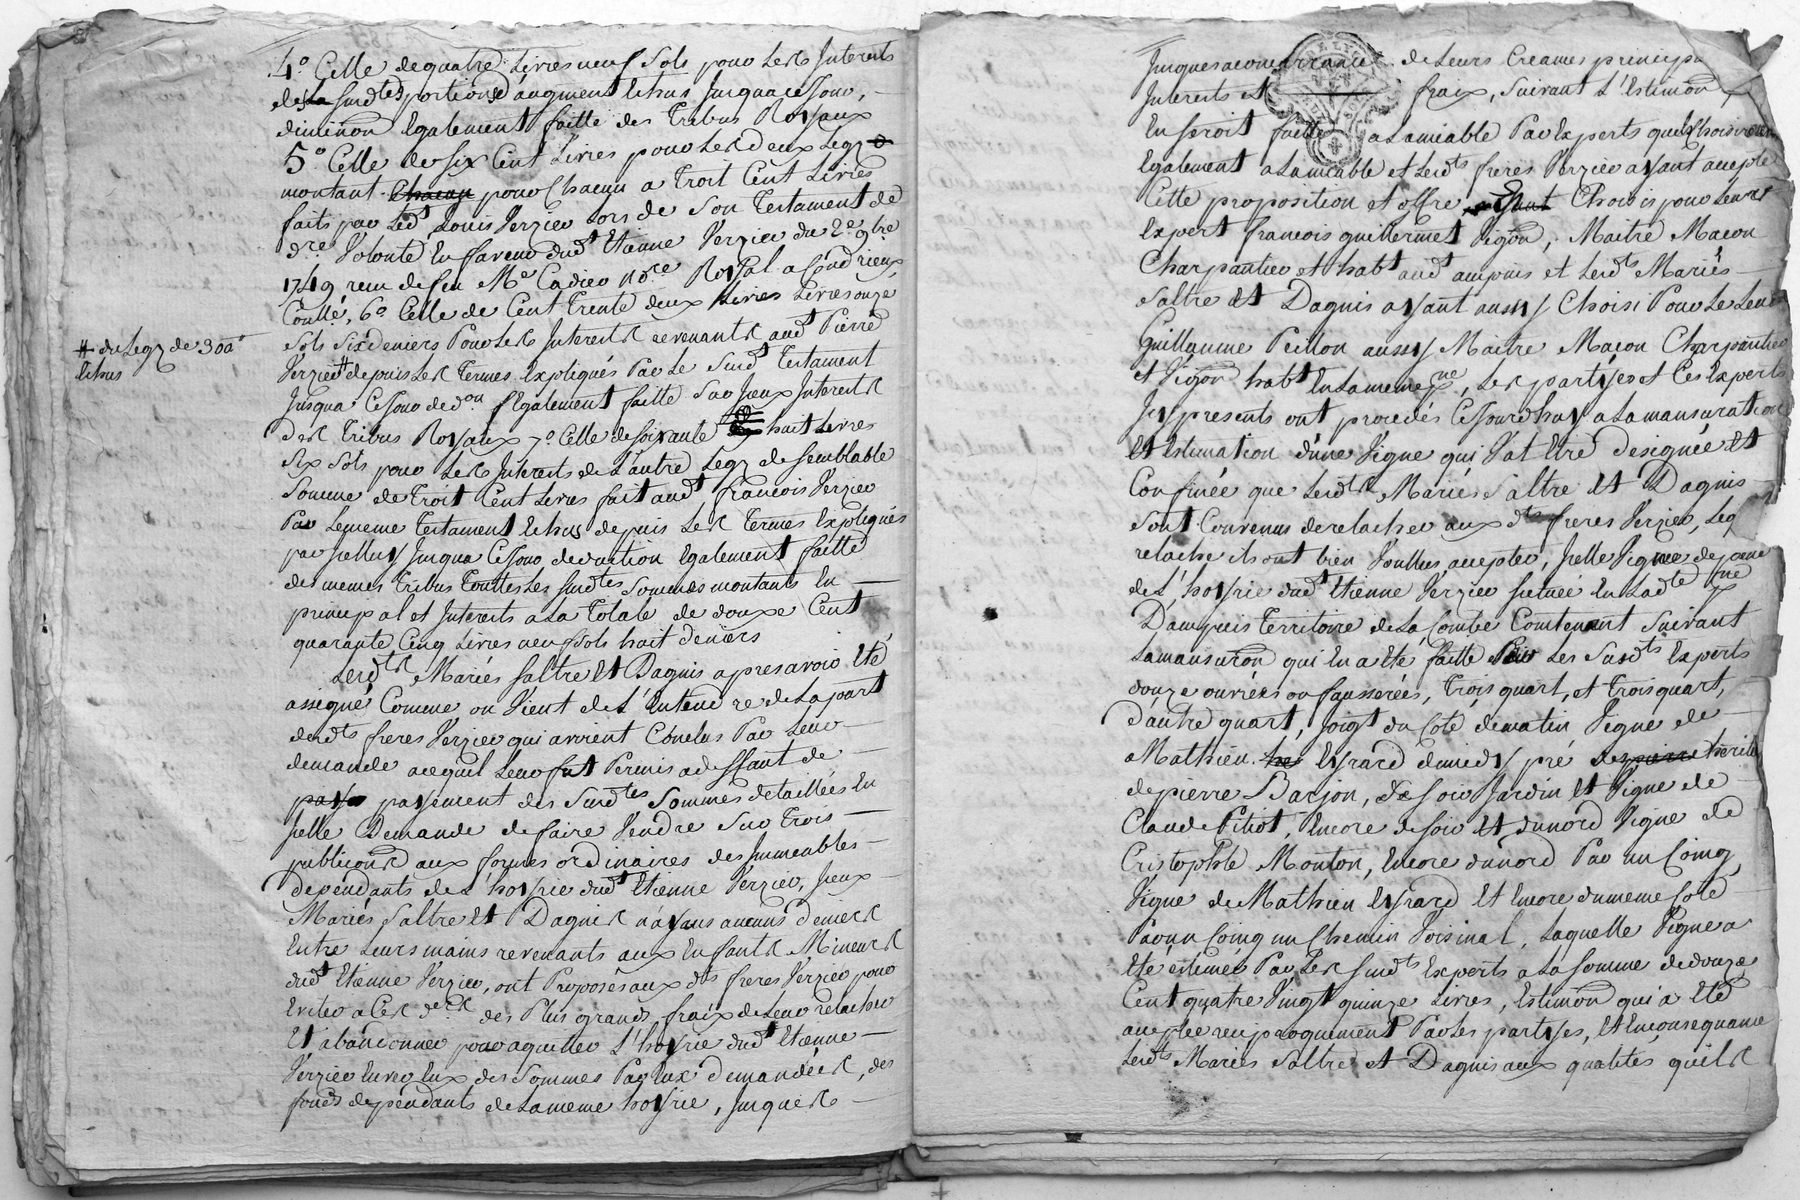 4° Celle de quatre Livres neuf sols pour Les Interets
de La susdtes portions d'augment Echus Jusqua ce Jour,
diminon Egalement faitte des Tribus Royaux
5° Celle de six Cent Livres pour Les deux Legz
montant Chacun pour Chacun a Troit Cent Livres
faits par Ledt Louis Verzier Lors de son Testament de
dre Volonté En faveur dudt Etienne Verzier du 2e 9bre
1749 recu de feu Me Cadier nore Royal a Condrieux
Conllé, 6° Celle de Cent Trente deux Livres Livres onze
sols six deniers Pour Les Interets revenants audt Pierre
# du Legz de 300 tt
Echus
Verzier # depuis Les Termes Expliqués Par Le Susdt Testament
Jusqua Ce Jour de don Egalement faitte Sur Jeux Interets
des Tribus Royaux 7° Celle de soixante huit Livres
six sols pour Les Interets de L'autre Legz de semblable
Somme de Troit Cent Livres fait audt francois Verzier
Par Le meme Testament Echus depuis Les Termes Expliqués
par Jselluy Jusqua Ce Jour deduction Egalement faitte
des memes Tribus Touttes Les susdtes Sommes montants En
principal et Interets a La Totale de douze Cent
quarante Cinq Livres neuf sols huit deniers
Lesdts Mariés Saltre Et Dagnis apres avoir Eté
assigné Comme on Vient de L'Entendre de La part
desdts freres Verzier qui avoient Conclus Par Leur
demande acequil Leur fut Permis a deffaut de
payem payement des Susdtes Sommes detaillées En
Jselle Demande de faire Vendre Sur Trois
publications aux formes ordinaires des Immeubles
dependants de L'hoyrie dudt Etienne Verzier, Jceux
Mariés Saltre Et Dagnis n'ayans aucuns deniers
Entre Leurs mains revenants aux Enfants Mineurs
dudt Etienne Verzier, ont Proposés aux dts freres Verzier pour
Eviter a Ces ders des Plus grands fraix de Leur relacher
Et abandonner pour aquitter L'hoyrie dudt Etienne
Verzier Envers Eux des Sommes Par Eux demandées, des
fonds dependants de La meme hoyrie, Jusques
Jusques a concurrance de Leurs Creances principa
Interets Et fraix, Suivant L'Estimon
En seroit faitte a Lamiable Par Experts quels choisiroient
Egalement a Lamiable et Lesdts freres Verzier ayant accepté
Cette proposition et offre, Choisis pour Leur
Expert francois guillermet Pigon, Maitre Macon
Charpantier et habt audt ampuis et Lesdts Mariés
Saltre Et Dagnis ayant aussy Choisi Pour Le Leur
Guillaume Peillon aussy Maitre Macon Charpantier
et Vigon habt En La meme pne, Les partyes et Ces Experts
Jcy presents ont procedés Cejourdhuy a La mansuration
Et Estimation d'une Vigne qui Vat Etre designée Et
Confinée que Lesdts Mariés Saltre Et Dagnis
sont Convenus de relacher aux dts freres Verzier, Leq
relache ils ont bien Voullus accepter, Jselle Vigne dependte
de L'hoyrie dudt Etienne Verzier situéé En Ladte pne
Dampuis Territoire de La Combe Contenant Suivant
La mansuron qui En a Eté faitte Par Les Susdts Experts
douze ouvrées ou fausserées, Trois quart, et Trois quart,
d'autre quart, Joigt du Coté de matin Vigne de
Mathieu Eyrard dumidy pré Verite
de pierre Barjon, de soir Jardin Et Vigne de
Claude Pitiot, Encore de soir Et du nord Vigne de
Cristophle Monton, Encore du nord Par un Coing,
Vigne de Mathieu Eyrard Et Encore du meme Coté
Par un Coing un Chemin Voisinal, Laquelle Vigne a
Eté estimée Par Les susdts Experts a La somme de douze
Cent quatre Vingt quinze Livres, Estimon qui a Eté
acceptée reciproquement Par Les partyes, Et Enconsequance
Lesdts Mariés Saltre et Dagnis aux qualités quils